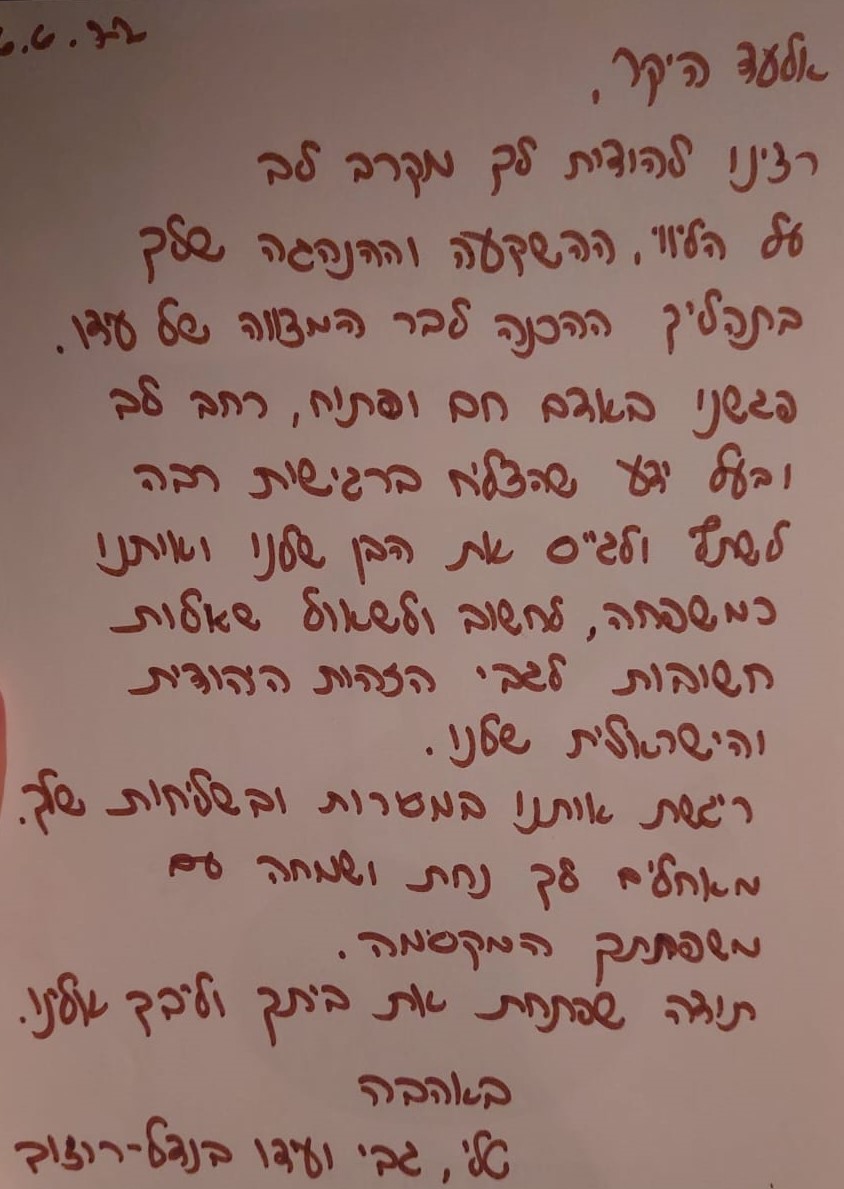 אלעד היקר,
רצינו להודות לך מקרב לב
על הליווי, ההשקעה וההנהגה שלך
בתהליך ההכנה לבר המצווה של עידו.
פגשנו באדם חם ופתוח, רחב לב
ובעל ידע שהצליח ברגישות רבה
לשתף ולגייס את הבן שלנו ואותנו
כמשפחה, לחשוב ולשאול שאלות
חשובות לגבי הזהות היהודית
והישראלית שלנו.
ריגשת אותנו במסירות ובשליחות שלך.
מאחלים לך נחת ושמחה עם
משפחתך המקסימה.
תודה שפתחת את ביתך וליבך אלינו.
באהבה
טלי, גבי ועידו בנדל-רוזוב